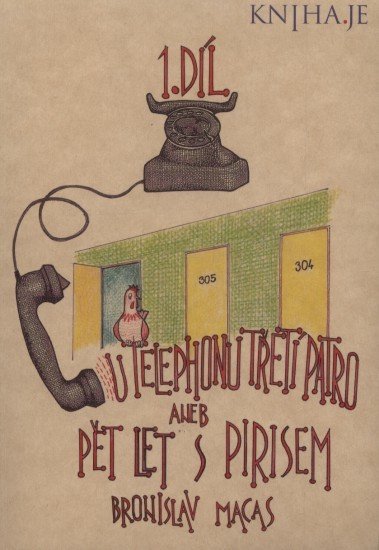 KNIHA.JE
1.DÍL
305
304
U TELEPHONU TŘETÍ PATRO
ANEB
PĚT LET S PIRISEM
BRONISLAV MACAS